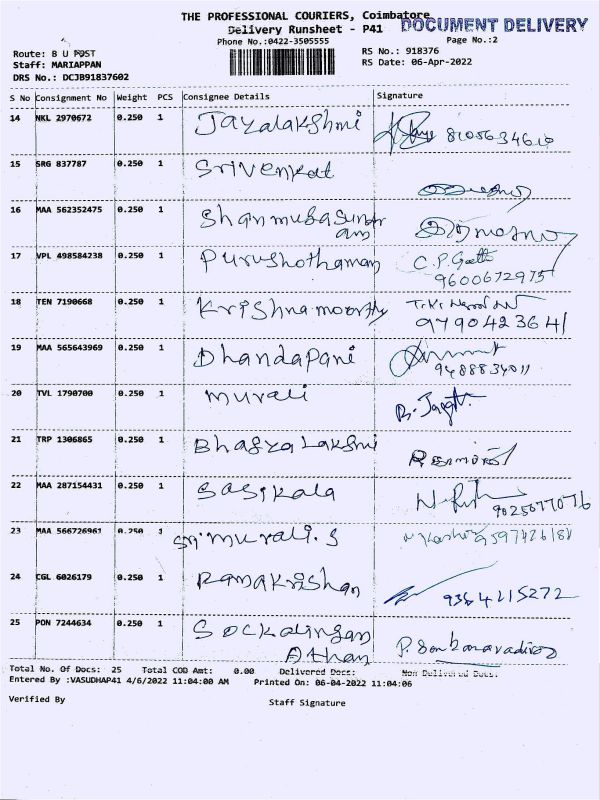 THE PROFESSIONAL COURIERS, Coimbatore
DOCUMENT DELIVERY
Delivery Runsheet - P41
Phone No.:0422-3505555
Page No.:2
Route: B U POST
RS No.: 918376
Staff: MARIAPPAN
RS Date: 06-Apr-2022
DRS No.: DCJB91837602
S No Consignment No Weight PCS Consignee Details Signature
14 NKL 2970672 0.250 1 Jayalakshmi
15 SRG 837787 0.250 1 Srivenkat
16 MAA 562352475 0.250 1 Shanmugasundr
am
17 VPL 498584238 0.250 1 Purushothaman C.P.
9600672975
18 TEN 7190668 0.250 1 Krishnamoorthy
9790423641
19 MAA 565643969 0.250 1 Dhandapani
9488834011
20 TVL 1790700 0.250 1 murali
21 TRP 1306865 0.250 1 Bhagyalakshmi
22 MAA 287154431 0.250 1 Sasikala
9025677076
23 MAA 566726961 0.250 1 Sri murali.S
24 CGL 6026179 0.250 1 Ramakrishan 9364215272
25 PON 7244634 0.250 1 Sockalingan
Athan
Total No. Of Docs: 25 Total COD Amt: 0.00 Delivered Docs: Non Delivered Docs:
Entered By :VASUDHAP41 4/6/2022 11:04:00 AM Printed On: 06-04-2022 11:04:06
Verified By
Staff Signature